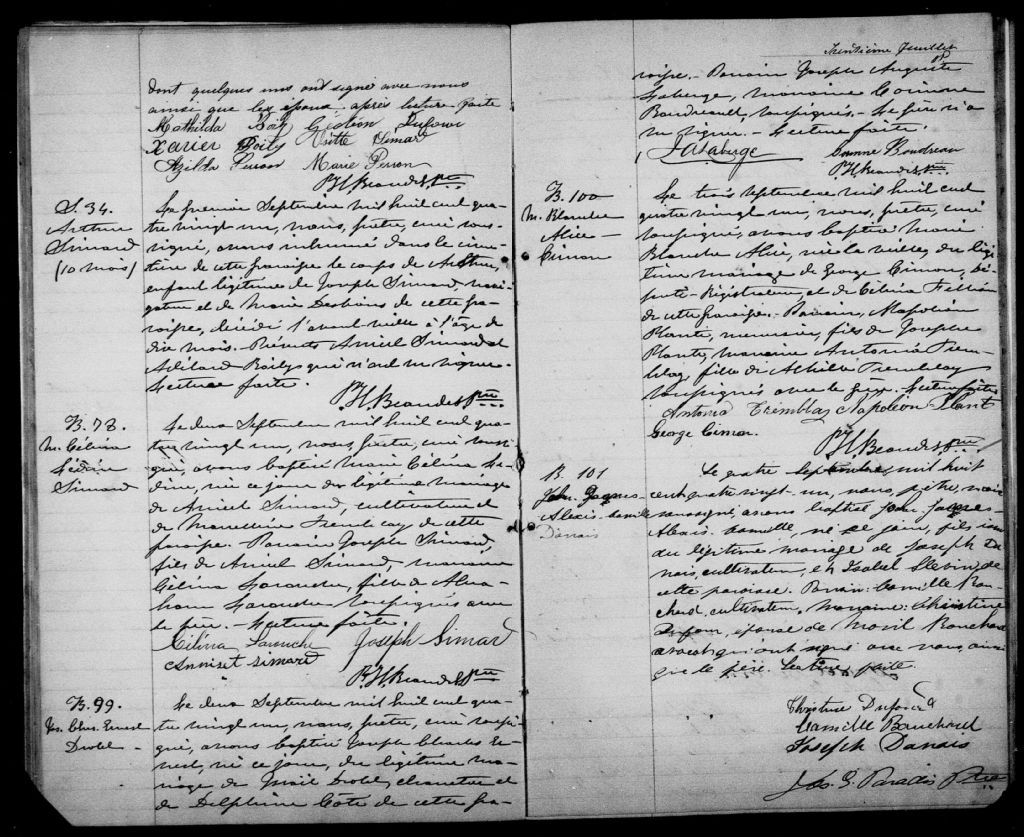 dont quelques uns ont signé avec nous
ainsi que les époux après lecture faite
Mathilda Boily Gédéon Dufour
Xavier Boily Ositte Simard
Azilda Perron Marie Perron
B.H. Beaudet Ptre
S. 34.
Arthur
Simard
(10 mois)
Le premier Septembre mil huit cent qua-
tre vingt un, nous, prêtre, curé sous-
signé, avons inhumé dans le cime-
tière de cette paroisse le corps de Arthur,
enfant légitime de Joseph Simard, navi-
gateur et de Marie Desbiens de cette pa-
roisse, décédé l'avant veille à l'âge de
dix mois. Présents Amiel Simard et
Adélard Boilys qui n'ont su signer.
Lecture faite.
B.H. Beaudet Ptre
B. 98.
M. Célina
Lédine
Simard
Le deux Septembre mil huit cent qua-
tre vingt un, nous, prêtre, curé soussi-
gné, avons baptisé Marie Célina Lé-
dine, née ce jour du légitime mariage
de Amiel Simard, cultivateur et
de Marcelline Tremblay de cette
paroisse. Parrain Joseph Simard,
fils de Amiel Simard, marraine
Célina Larouche, fille de Abra-
ham Larouche soussignés avec
le père. Lecture faite.
Célina Larouche Joseph Simard
Simard
B.H. Beaudet Ptre
B. 99.
Jos. Chs. Ernest
Drolet
Le deux Septembre mil huit cent qua-
tre vingt un, nous, prêtre, curé soussi-
gné, avons baptisé Joseph Charles Er-
nest, né ce jour, du légitime ma-
riage de Drolet, charretier et
de Delphine Côté de cette pa-
Trentième feuillet
roisse. Parrain Joseph Auguste
Laberge, marraine Corinne
Boudreault, soussignés. Le père n'a
su signer. Lecture faite.
J A Laberge Corinne Boudreau
B.H. Beaudet Ptre
B. 100
M. Blanche
Alice
Cimon
Le trois Septembre mil huit cent
quatre vingt un, nous, prêtre, curé
soussigné, avons baptisé Marie
Blanche Alice, née la veille, du légi-
time mariage de George Cimon, Dé-
puté-Régistrateur, et de Célina Fillion
de cette paroisse. Parrain, Napoléon
Plante, menuisier, fils de Joseph
Plante, marraine Antonia Trem-
blay, fille de Achille Tremblay
soussignés avec le père. Lecture faite.
Antonia Tremblay Napoléon Plant
George Cimon.
B.H. Beaudet Ptre
B. 101
John. Jacques-
Alexis. Camille
Danais
Le quatre Septembre mil huit
cent quatre vingt-un, nous, prêtre, vicaire
soussigné, avons baptisé John Jacques-
Alexis. Camille, né ce jour, fils issu
du légitime mariage de Joseph Da-
nais, cultivateur, et Isabel Slevin de
cette paroisse. Parrain: Camille Bou-
chard, cultivateur. Marraine: Christine
Dufour, épouse de Bouchard
avocat qui ont signé avec nous, ainsi
que le père. Lecture faite.
Christine Dufour
Camille Bouchard
Joseph Danais
Jos. G. Paradis Ptre